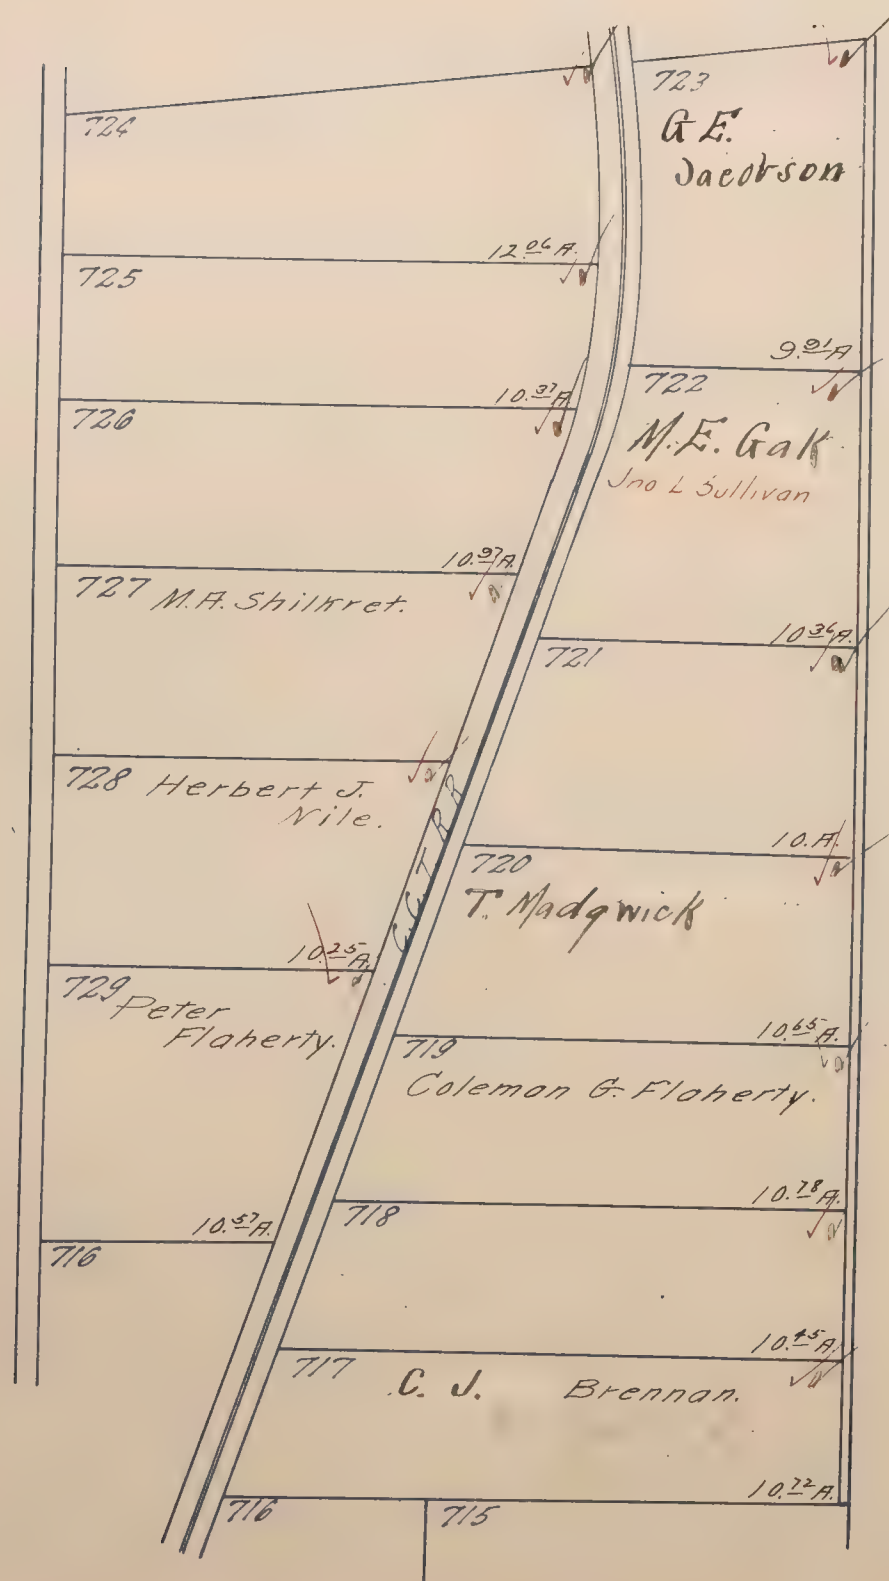 724
12.06 A.
725
10.37 A
726
10.97 A.
727 M.A. Shilkret.
728 Herbert J.
Nile.
10.25 A.
729 Peter
Flaherty.
10.57 A.
716
C. C. T. R R
723
G E.
Jacobson
9.91 A
722
M. E. Gak
Jno L Sullivan
10.36 A.
721
10. A.
720
T. Madgwick
10.65 A.
719
Coleman G. Flaherty.
10.78 A.
718
10.45 A
717 C. J. Brennan.
10.72 A.
716 715